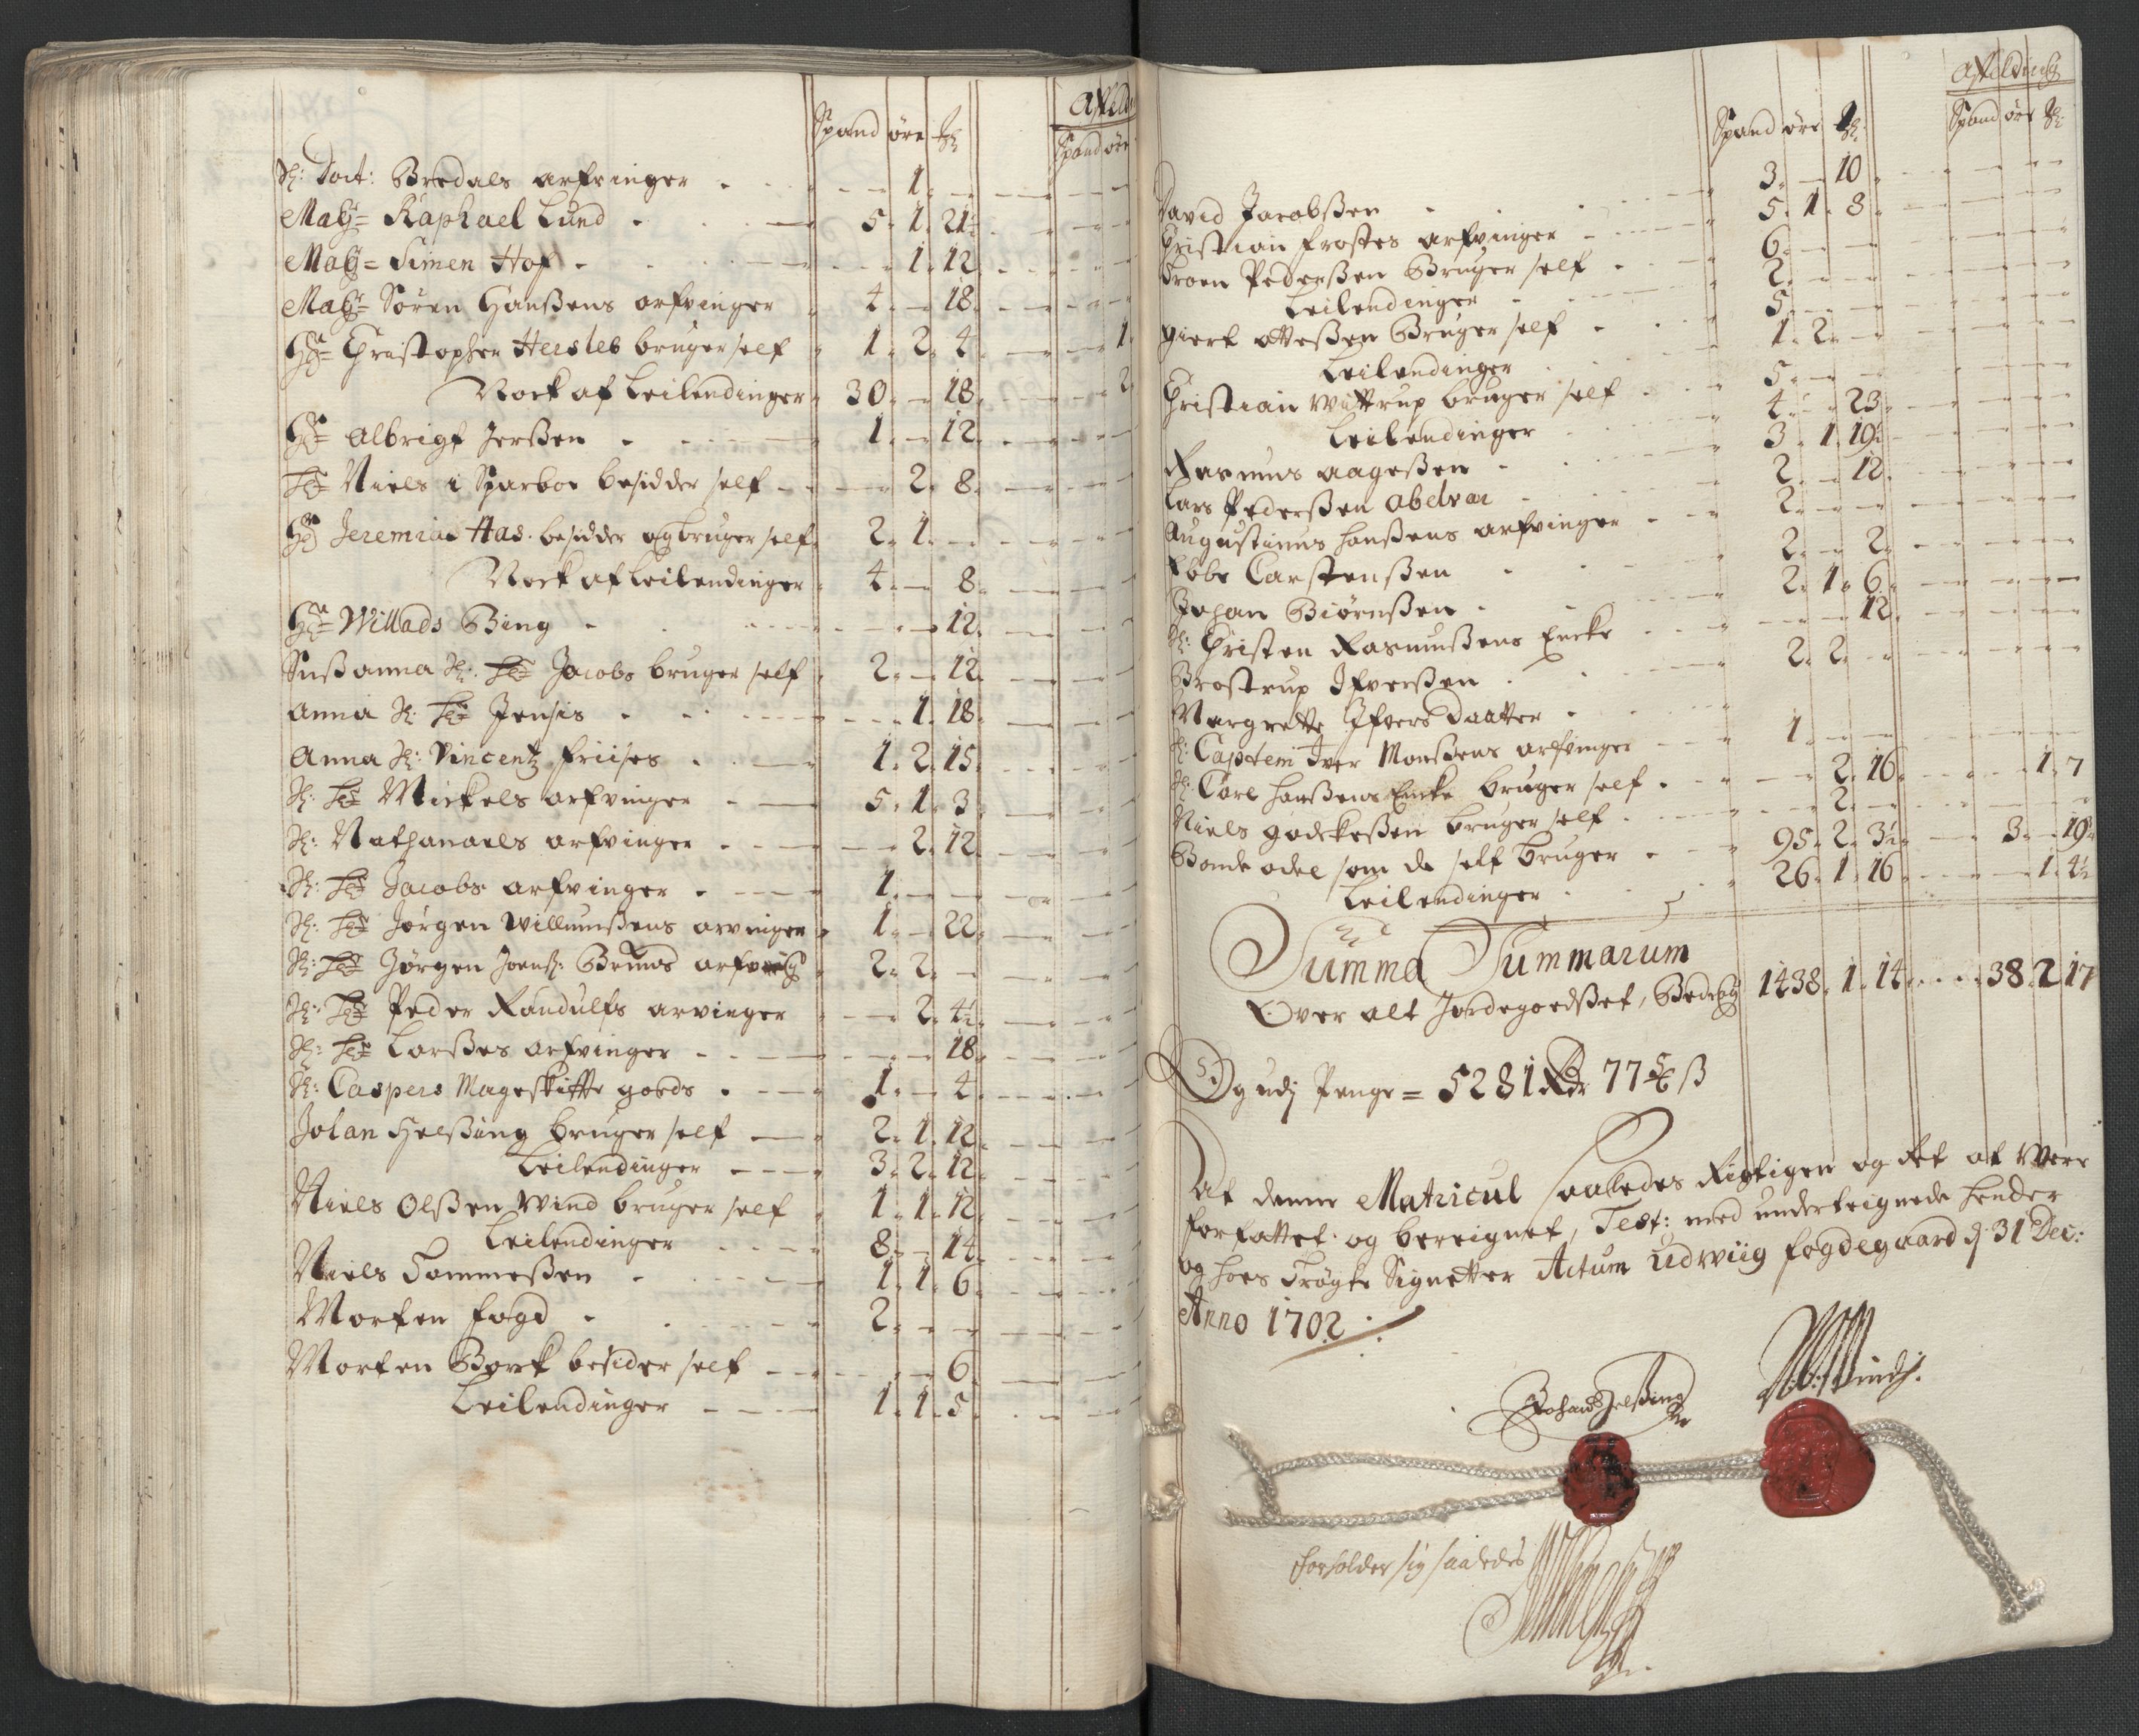 Spand øre
Sl: Doct: Bredals arfvinger - 1 -
Magr= Raphael Lund - 5 - 1 - 21½
Magr= Simen Hof - 1 - 12
Magr= Søren Hanßens arfvinger 4 - - 18
Hr= Christopher Hersleb bruger self 1 - 2 - 4 1
Nock af Leilendinger 30 - - 18 2
Hr= Albrigt Jerßen - 1 - - 12
Hr= Niels i Sparboe besidder self - 2 - 8
Hr Jeremias Has. besidder og bruger self 2 - 1 -
Nock af Leilendinger 4 - - 8
Hr= Willads Bing - 12
Sußanna Sl: Hr= Jacobs bruger self 2 - - 12
Anna Sl: Hr= Jensis - 1 - 18
Anna Sl: Vincentz Friises 1 - 2 - 15
Sl: Hr= Mickels arfvinger - 5 - 1 - 3
Sl: Nathanaels arfvinger - 2 - 12
Sl: Hr= Jacobs arfvinger - 1 -
Sl: Hr= Jørgen Willumßens arvinger 1 - - 22
Sl: Hr= Jørgen Joens: Bruns arfving 2 - 2 -
Sl: Hr= Peder Randulfs arvinger - 2 - 4½
Sl: Hr= Larßes arfvinger - 18
Sl: Caspers Mageskifte goeds - 1 - - 4
Johan Helßing bruger self 2 - 1 - 12
Leilendinger 3 - 2 - 12
Niels Olßen Wind bruger self 1 - 1 - 12
Leilendinger 8 - - 14
Niels Tommeßen - 1 - 1 - 6
Morten fogd - 2 -
Morten Bork besider self - 6
Leilendinger 1 - 1 - 5
Afelding
Spand øre Spand øre
David Jacobßen 3 - - 10
Christian Frostes arfvinger 5 - 1 - 8
Troen Pederßen Bruger self 6 -
Leilendinger 2 -
otteßen Bruger self 5 -
Leilendinger 1 - 2 -
Christian Wittrup bruger self 5 -
Leilendinger 4 - - 23
Rasmus Aageßen 3 - 1 - 19½
Lars Pederßen Abelvær 2 - - 12
Augustinus Hanßens arfvinger 2 -
Ebbe Carstenßen 2 - - 2
Johan Biørnßen 2 - 1 - 6
Sl: Christen Rasmußens Encke 12
Brostrup Ifverßen 2 - 2 -
Margrette Ifversdaatter
Sl: Captein Iver Monßens arfvinger 1 -
Sl: Carl Hanßens Encke bruger self 2 - 16 1 - 7
Niels Godskeßen bruger self 2 -
Bonde odel som de self bruger 95 - 2 - 3½ 3 - - 19½
Leilendinger 26 - 1 - 16 1 - 4½
Summa Summarum
Over alt Jordegoedset, 1438 - 1 - 14 38 - 2 - 17
Og udj Penge = 5281 Rdr 77⅚ ß
At denne Matricul saaledes Rigtigen og Ret at være
forfattet og bereignet, Test: med underteignede hender
og hoes trøgte Signetter Actum Udwiig fogdegaard d: 31 Dec:
Anno 1702
Johan Helßing
Wind
forholder sig saaledes